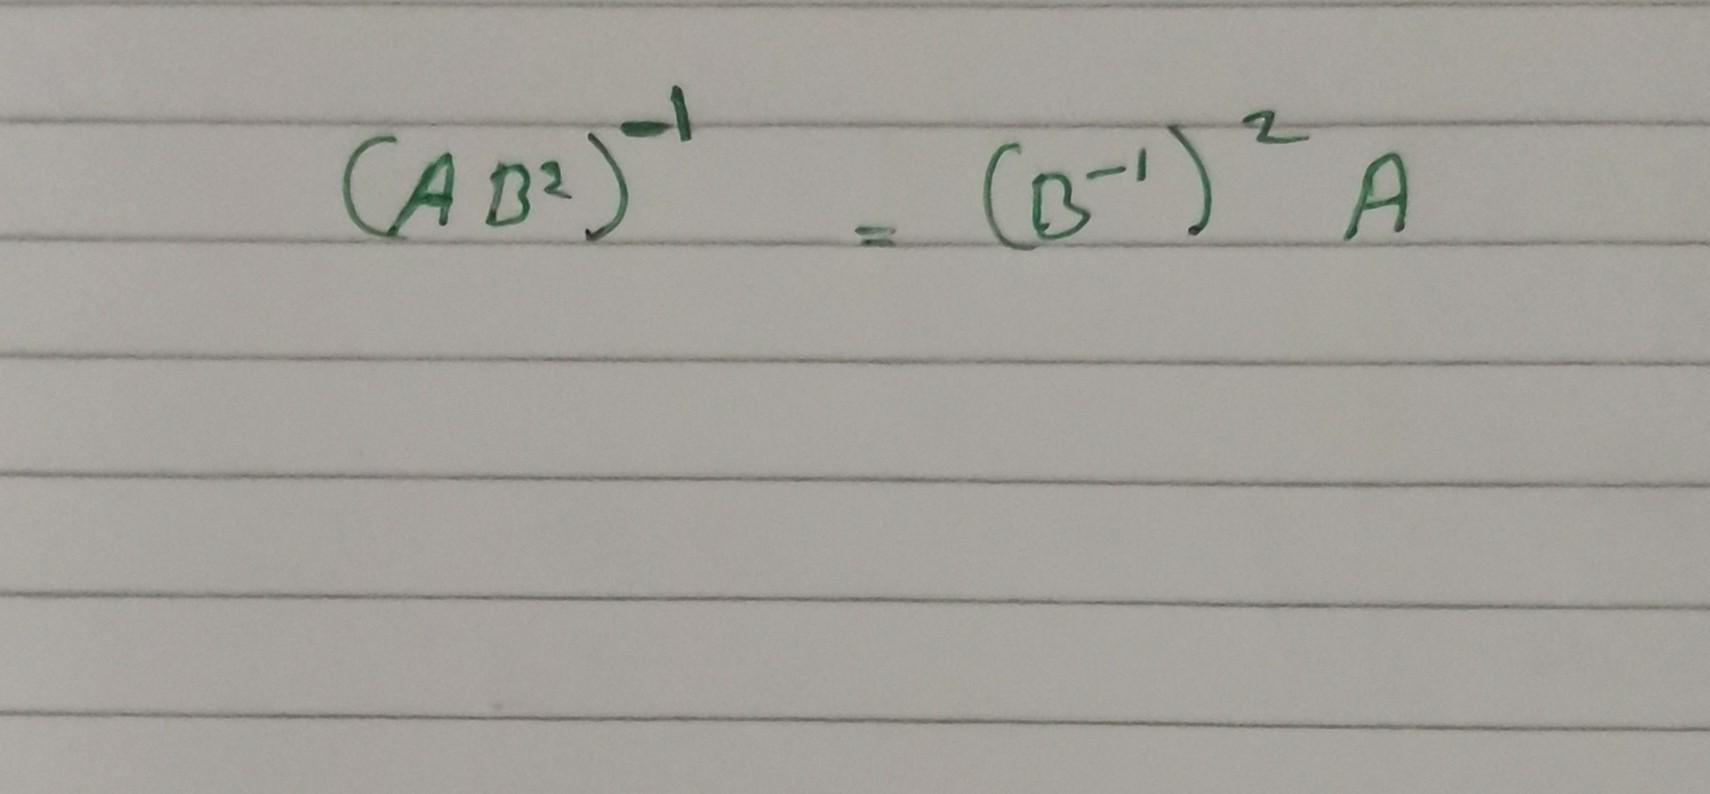 (AB²)⁻¹ = (B⁻¹)² A